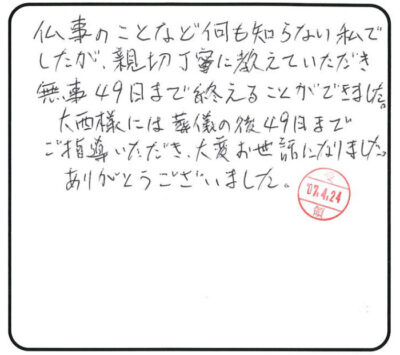 仏事のことなど何も知らない私で
したが、親切丁寧に教えていただき
無事49日まで終えることができました。
大西様には葬儀の後49日まで
ご指導いただき、大変お世話になりました。
ありがとうございました。
受
07.4.24
領